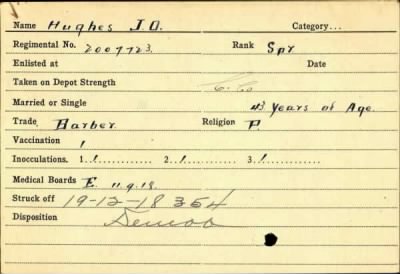 Name Hughes J.O. Category...
Regimental No. 2009723. Rank Spr
Enlisted at Date
Taken on Depot Strength
Married or Single 43 Years of Age.
Trade Barber. Religion P.
Vaccination 1
Inoculations. 1.1............ 2.1............ 3.1............
Medical Boards E. 11.9.18.
Struck off 19-12-18 354
Disposition Demob